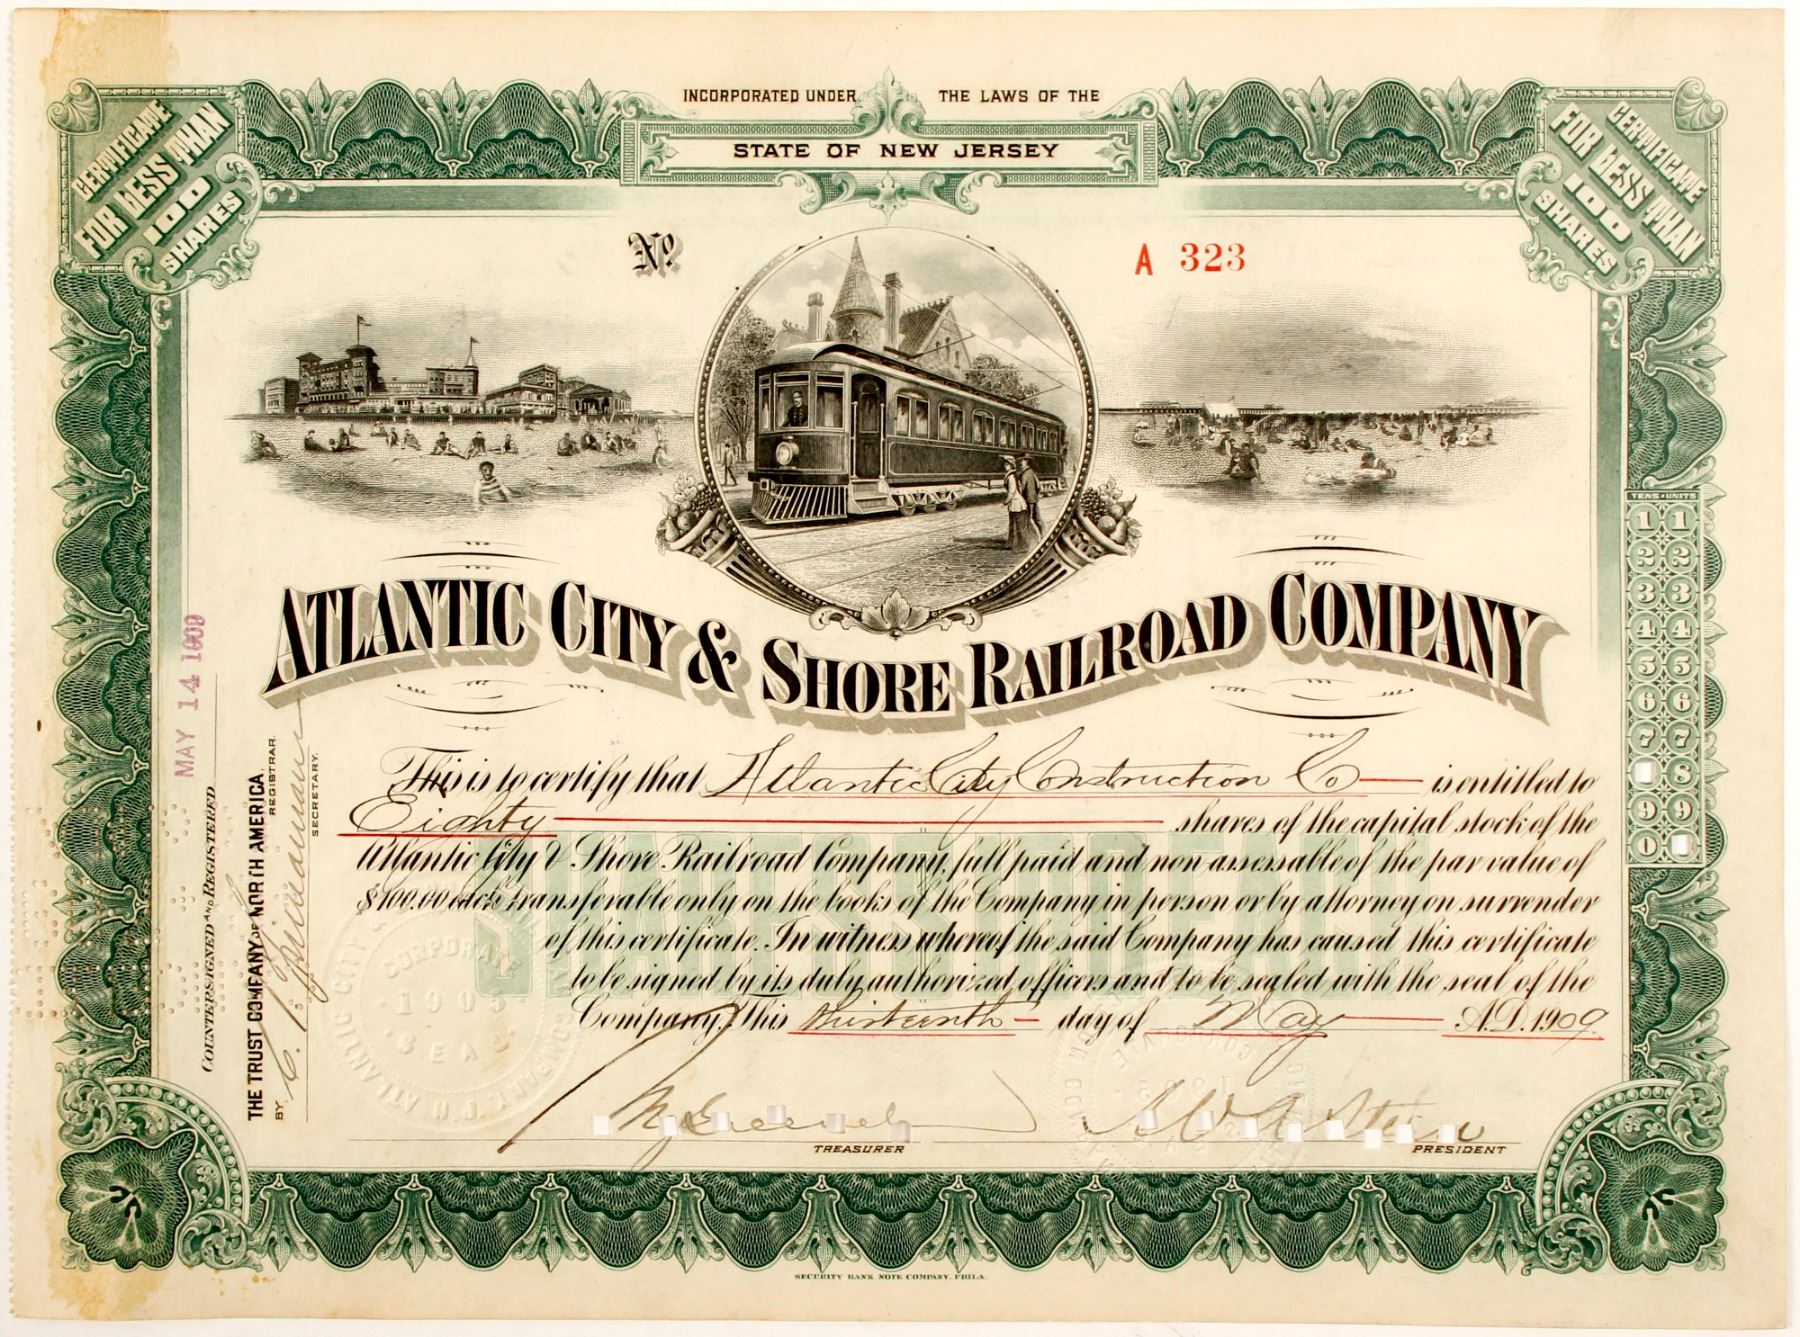 INCORPORATED UNDER THE LAWS OF THE
STATE OF NEW JERSEY
CERTIFICATE
FOR LESS THAN
100
SHARES
CERTIFICATE
FOR LESS THAN
100
SHARES
No. A 323
ATLANTIC CITY & SHORE RAILROAD COMPANY
This is to certify that Atlantic City Construction Co is entitled to
Eighty shares of the capital stock of the
Atlantic City & Shore Railroad Company, full paid and non assessable of the par value of
$100.00 each transferable only on the books of the Company in person or by attorney on surrender
of this certificate. In witness whereof the said Company has caused this certificate
to be signed by its duly authorized officers and to be sealed with the seal of the
Company, this thirteenth day of May A.D. 1909.
TREASURER
PRESIDENT
MAY 14 1909
COUNTERSIGNED AND REGISTERED
THE TRUST COMPANY OF NORTH AMERICA,
REGISTRAR.
BY
SECRETARY.
CORPORATE
1905
SEAL
TENS UNITS
1 1
2 2
3 3
4 4
5 5
6 6
7 7
8
9 9
0
SECURITY BANK NOTE COMPANY, PHILA.